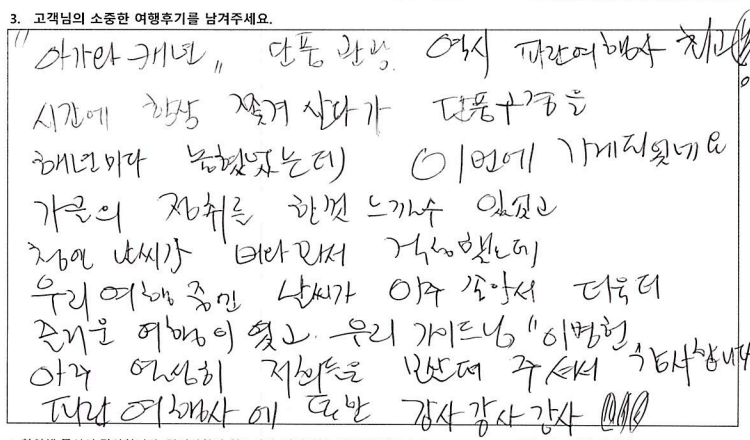 3. 고객님의 소중한 여행후기를 남겨주세요.
"아가와 캐년" 단풍 관광. 역시 파란여행사 최고!
시간에 항상 쫓겨 살다가 단풍구경을
해년마다 놓혔었는데 이번에 가게되었네요
가을의 정취를 한껏 느낄수 있었고
첨엔 날씨가 따라줘서 걱정했는데
우리 여행 중인 날씨가 아주 좋아서 더욱더
즐거운 여행이 였고. 우리 가이드님 "이병헌
아주 열심히 저희들을 보살펴 주셔서 감사합니다
파란여행사에 또한 감사 감사 감사